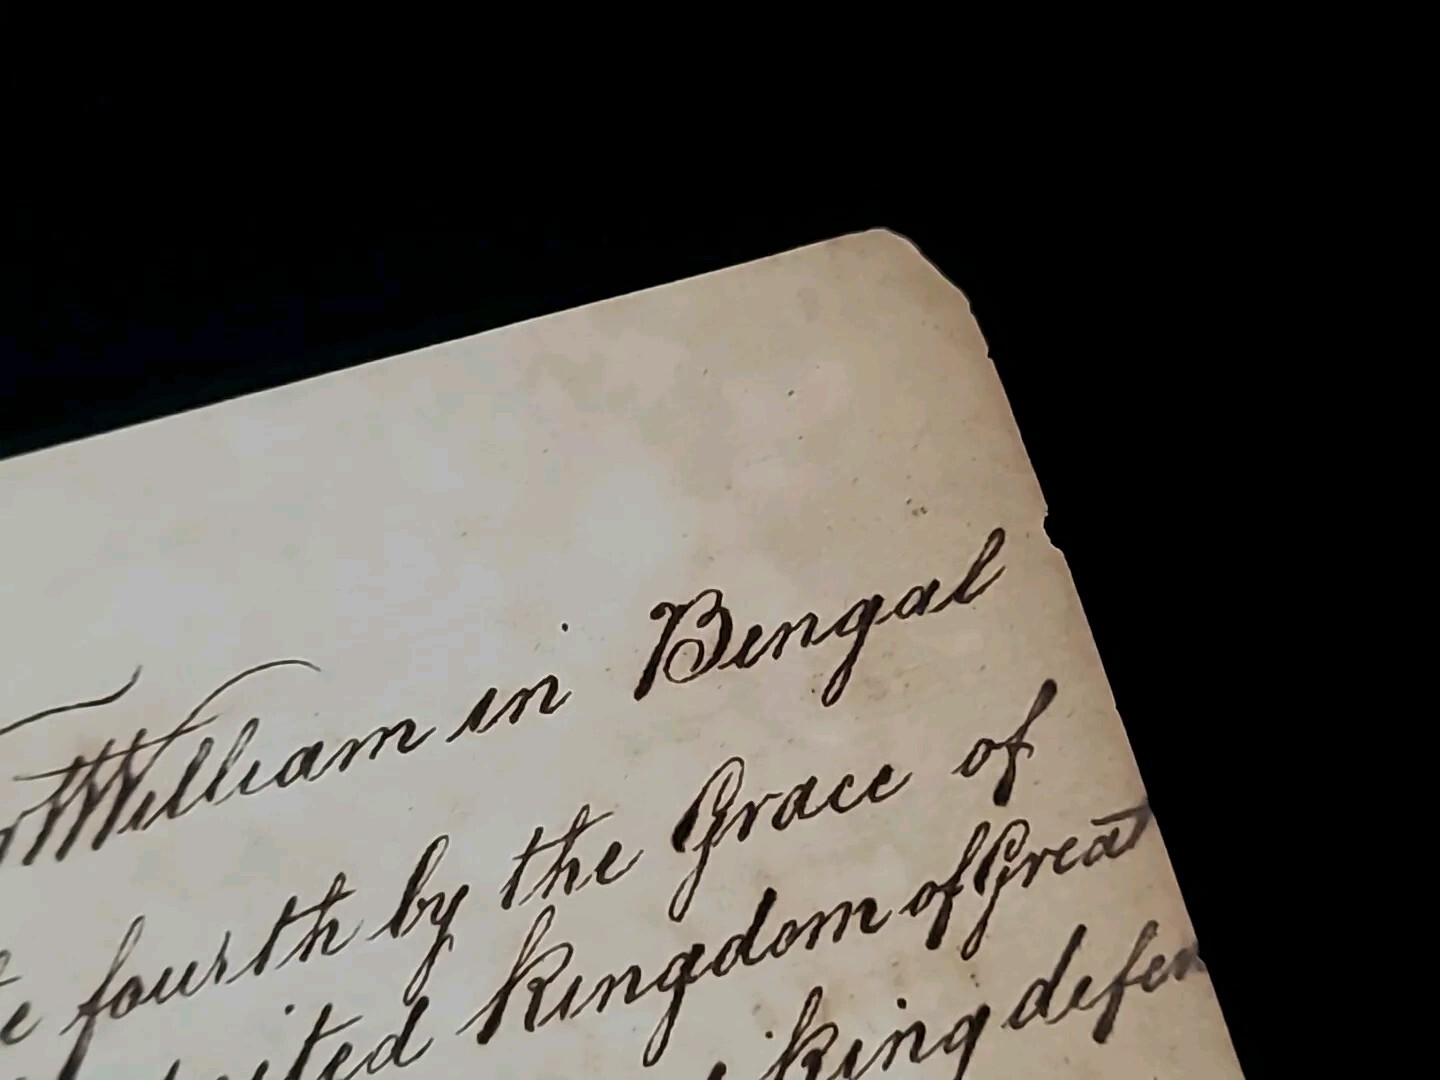 William in Bengal
fourth by the Grace of
Kingdom of Great
King defen